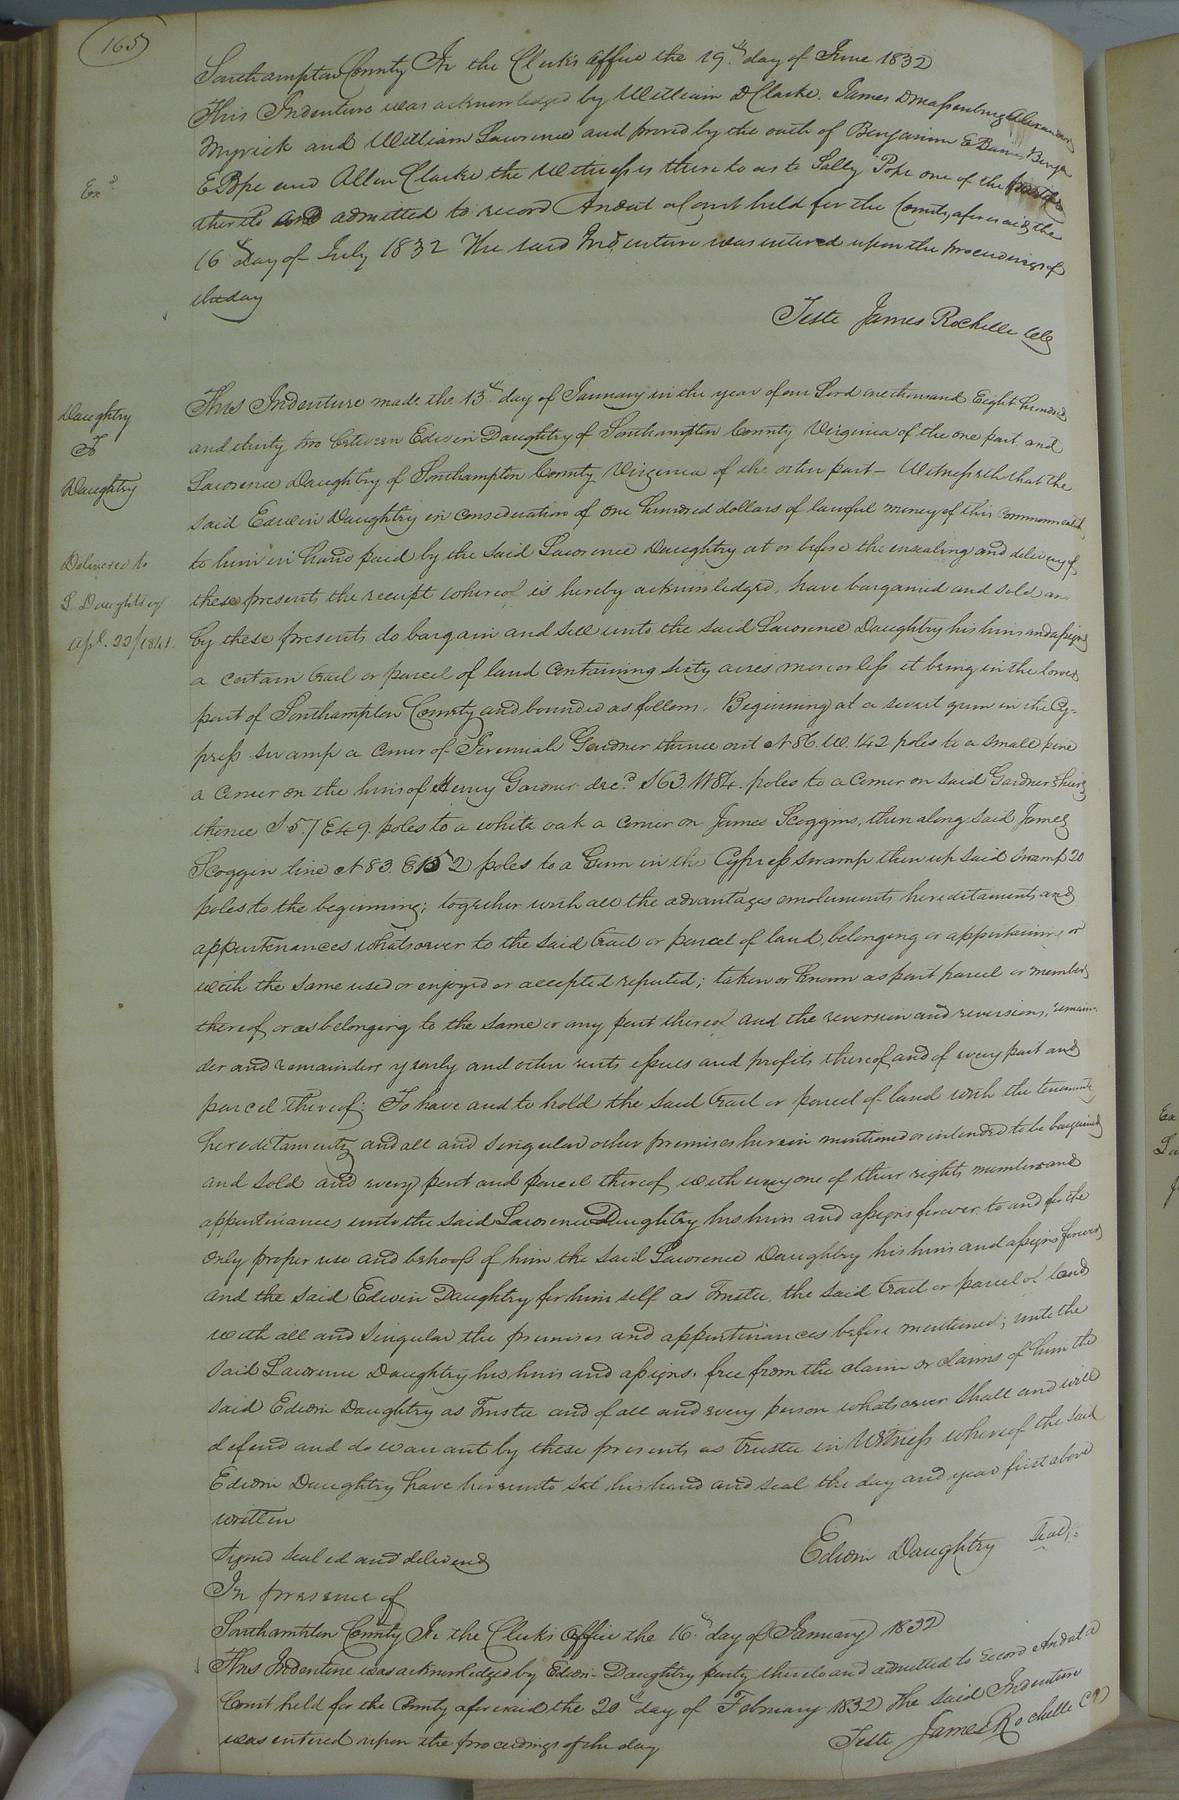 165
Southampton County In the Clerks office the 19th day of June 1832
This Indenture was acknowledged by William D Clarke, James D Massenburg Alexander
Myrick and William Lawrence and proved by the oath of Benjamin E Barnes
E Pope and Allen Clarke the Witnesses thereto as to Sally Pope one of the parties
thereto and admitted to record And at a Court held for the County aforesaid the
16th day of July 1832 The said Indenture was entered upon the proceedings of
the day
Teste James Rochelle
Exd
Daughtry
To
Daughtry
Delivered to
L Daughtry
Apl. 22/1841.
This Indenture made the 13th day of January in the year of our Lord one thousand Eight hundred
and thirty two between Edwin Daughtry of Southampton County Virginia of the one part and
Lawrence Daughtry of Southampton County Virginia of the other part— Witnesseth that the
said Edwin Daughtry in consideration of one hundred dollars of lawful money of this Commonwealth
to him in hand paid by the said Lawrence Daughtry at or before the ensealing and delivery of
these presents the receipt whereof is hereby acknowledged, have bargained and sold and
by these presents do bargain and sell unto the said Lawrence Daughtry his heirs and assigns
a certain tract or parcel of land containing sixty acres more or less it being in the lower
part of Southampton County and bounded as follows. Beginning at a sweet gum in the Cy-
press swamp a corner of Jeremiah Gardner thence out N 86. W. 142 poles to a small pine
a corner on the heirs of Henry Gardner decd S 63. W 84. poles to a corner on said Gardners heirs
thence S 57 E 49 poles to a white oak a corner on James Scoggins, then along said James
Scoggin line N 83. E 152 poles to a Gum in the Cypress swamp then up said swamp 20
poles to the beginning; together with all the advantages emoluments hereditaments and
appurtenances whatsoever to the said tract or parcel of land, belonging or appertaining or
with the same used or enjoyed or accepted reputed; taken or known as part parcel or member
thereof, or as belonging to the same or any part thereof and the reversion and reversions, remain-
der and remainders yearly and other rents issues and profits thereof and of every part and
parcel thereof: To have and to hold the said tract or parcel of land with the tenements
hereditaments and all and singular other premises herein mentioned or intended to be bargained
and sold and every part and parcel thereof with every one of their rights members and
appurtenances unto the said Lawrence Daughtry his heirs and assigns forever to and for the
only proper use and behoof of him the said Lawrence Daughtry his heirs and assigns forever
and the said Edwin Daughtry for him self as Trustee the said tract or parcel of land
with all and singular the premises and appurtenances before mentioned; unto the
said Lawrence Daughtry his heirs and assigns, free from the claim or claims of him the
said Edwin Daughtry as Trustee and of all and every person whatsoever shall and will
defend and do warrant by these presents as trustee in Witness whereof the said
Edwin Daughtry have hereunto set his hand and seal the day and year first above
written
Edwin Daughtry Seal
Signed sealed and delivered
In presence of
Southampton County In the Clerks Office the 16th day of January 1832
This Indenture was acknowledged by Edwin Daughtry party thereto and admitted to record And at a
Court held for the County aforesaid the 20th day of February 1832 The said Indenture
was entered upon the proceedings of the day
Teste James Rochelle